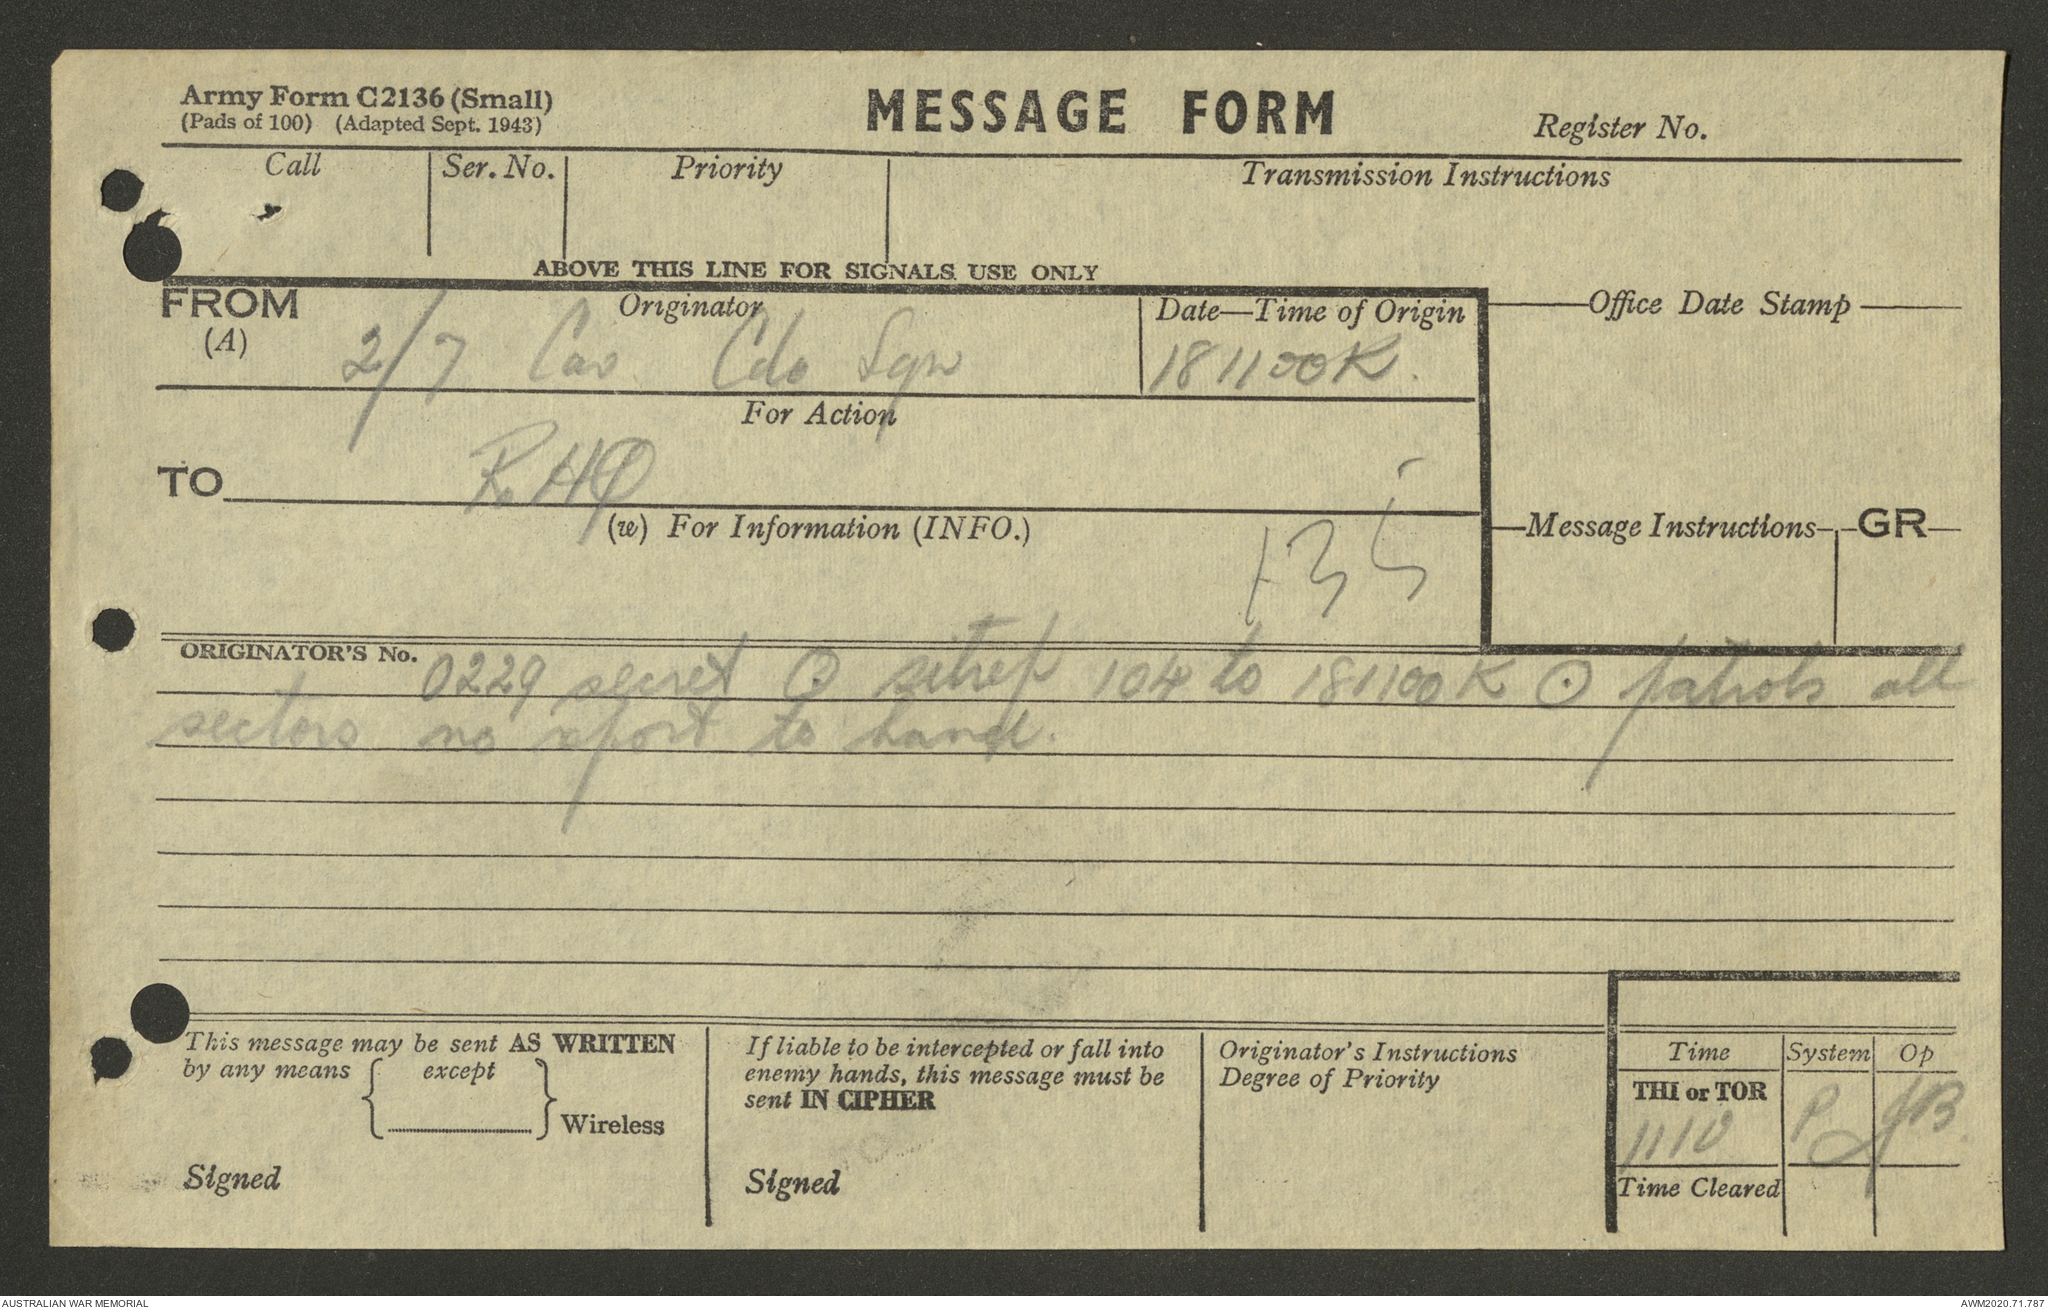 Army Form C2136 (Small)
(Pads of 100) (Adapted Sept. 1943)
MESSAGE FORM
Register No.
Call
Ser. No.
Priority
Transmission Instructions
ABOVE THIS LINE FOR SIGNALS USE ONLY
FROM
(A)
Originator
2/7 Cav Cdo Sqn
Date—Time of Origin
181100K.
Office Date Stamp
For Action
TO
RHQ
(w) For Information (INFO.)
135
Message Instructions
GR
ORIGINATOR'S No.
0229 secret ⊙ sitrep 104 to 181100K ⊙ patrols all
sectors no report to hand.
This message may be sent AS WRITTEN
by any means { except }
Wireless
Signed
If liable to be intercepted or fall into
enemy hands, this message must be
sent IN CIPHER
Signed
Originator's Instructions
Degree of Priority
Time
System
Op
THI or TOR
1110
P
JB
Time Cleared
AUSTRALIAN WAR MEMORIAL
AWM2020.71.787